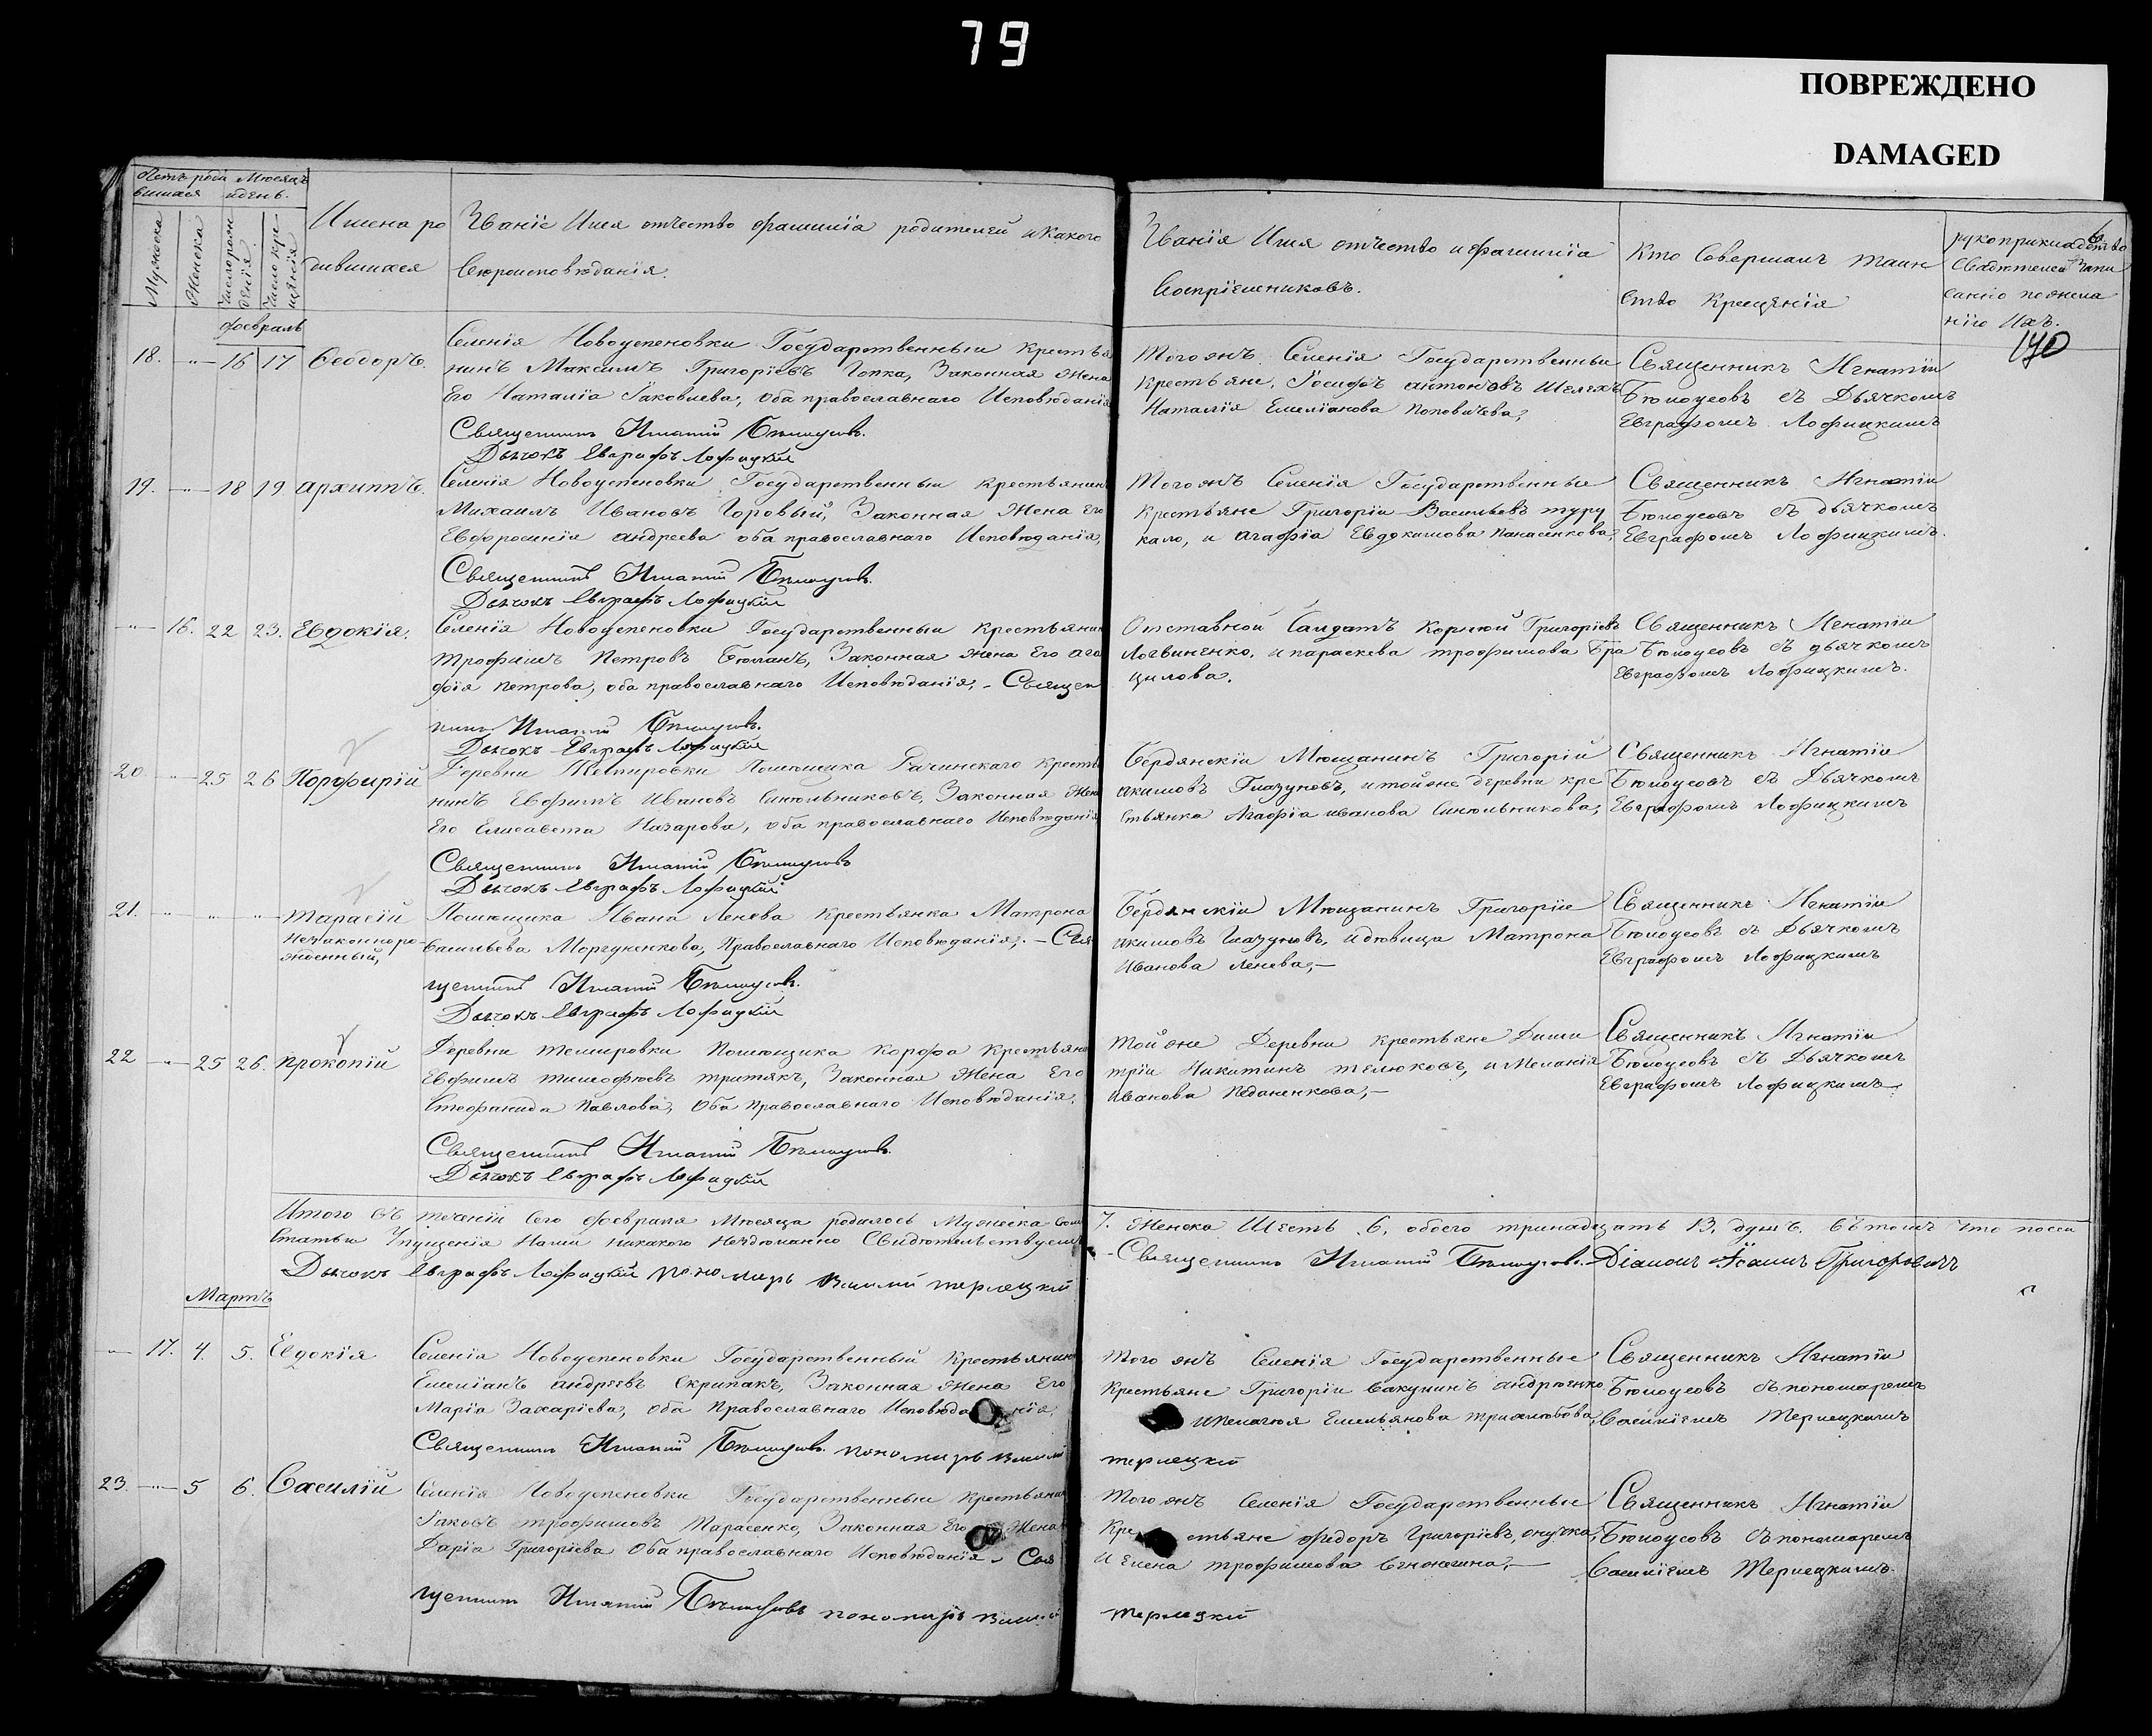 79
ПОВРЕЖДЕНО
DAMAGED
Щетъ роди Мѣсяцъ
вшихся идень.
Мужеска
Женска
Число рож
денія
Число кре
щенія
Имена ро
дившихся
Званіе Имя отчество фамилія родителей икакого
Вѣроисповѣданія.
Званія Имя отчество ифамилія
Воспріемниковъ.
Кто Совершалъ таин
ство Крещенія
рукоприкладство
Свидѣтелей Запи
санно пожела
нію Ихъ.
6
190
февраль
18. -"- 16 17 Ѳеодоръ.
Селенія Новоуспеновки Государственный Крестья
нинъ Максимъ Григоріевъ Гопка, Законная Жена
Его Наталіа Іаковлева, оба православнаго Исповѣданія
Священникъ Игнатій Бѣлоусовъ.
Дьячокъ Евграфъ Лофицкій
Тогожъ Селенія Государственныи
Крестьяне, Іосифъ антоновъ Шелехъ
Наталія Емеліанова Поповичева,
Священникъ Игнатіи
Бѣлоусовъ съ Дьячкомъ
Евграфомъ Лофицкимъ
19. -"- 18 19 архиппъ.
Селенія Новоуспеновки Государственныи крестьянинъ
Михаилъ Ивановъ Горовый, Законная Жена Его
Евфросинія андреева оба православнаго Исповѣданія,
Священникъ Игнатій Бѣлоусовъ.
Дьячокъ Евграфъ Лофицкій
Тогожъ Селенія Государственные
Крестьяне Григоріи Васильевъ туру
кало, и агафіа Евдокимова Панасенкова,
Священникъ Игнатіи
Бѣлоусовъ съ дьячкомъ
Евграфомъ Лофицкимъ.
-"- 16. 22 23. Евдокія.
Селенія Новоуспеновки Государственныи крестьянин
трофимъ Петровъ Бѣланъ, Законная жена Его ага
фія петрова, оба православнаго Исповѣданія, - Священ
никъ Игнатій Бѣлоусовъ.
Дьячокъ Евграфъ Лофицкій
Отставной Салдатъ Корнѣй Григоріевъ
Логвиненко, ипараскева трофимова Бра
цилова.
Священникъ Игнатіи
Бѣлоусовъ съ дьячкомъ
Евграфомъ Лофицкимъ.
20 -"- 25 26 Порфирій
Деревни Темировки Помѣщика Рачинскаго Кресть
нинъ Евфимъ Ивановъ Синѣльниковъ, Законная Жен
Его Елисавета Назарова, оба православнаго Исповѣданія
Священникъ Игнатій Бѣлоусовъ
Дьячокъ Евграфъ Лофицкій
Бердянскіи Мѣщанинъ Григорій
акимовъ Глазуновъ, итойже деревни кре
стьянка Агафіа иванова Синѣльникова,
Священникъ Игнатіи
Бѣлоусовъ съ Дьячкомъ
Евграфомъ Лофицкимъ
21. -"- " -"- тарасій
Незаконноро-
жденный,
Помѣщика Ивана Ленева Крестьянка Матрона
Васильева Моргуненкова, Православнаго Исповѣданія, - Свя
щенникъ Игнатій Бѣлоусовъ.
Дьячокъ Евграфъ Лофицкій
Бердянскіи Мѣщанинъ Григоріе
акимовъ Глазуновъ, идѣвица Матрона
Иванова Ленева, -
Священникъ Игнатіи
Бѣлоусовъ съ Дьячкомъ
Евграфомъ Лофицкимъ
22 -"- 25 26. прокопій
Деревни темировки Помѣщика Корфа крестьяни
Евфимъ тимофѣевъ третякъ, Законная Жена Его
Стефанида Павлова, Оба православнаго Исповѣданія.
Священникъ Игнатій Бѣлоусовъ.
Дьячокъ Евграфъ Лофицкій
Тойже Деревни крестьяне Дими
тріи Никитинъ телюковъ, и Меланія
иванова Педаненкова, -
Священникъ Игнатіи
Бѣлоусовъ съ Дьячкомъ
Евграфомъ Лофицкимъ
Итого Въ теченіи Сего февраля Мѣсяца родилось Мужеска Сем 7. Женска Шесть 6, обоего тринадцать 13, душъ. Вътомъ Что посеи
Статьи Упущенія Нами никакого Нездѣланно Свидѣтельствуемъ - Священникъ Игнатій Бѣлоусовъ. Діаконъ Іоаннъ Григоровичъ
Дьячокъ Евграфъ Лофицкій пономарь Василій терлецкій
Мартъ
-"- 17. 4. 5. Евдокія
Селенія Новоуспеновки Государственный Крестьянин
Емеліанъ андреевъ Скрипакъ, Законная жена Его
Маріа Захаріева, оба Православнаго Исповѣда нія,
Священникъ Игнатій Бѣлоусовъ. пономарь Василій
терлецкій
Того жъ Селенія Государственные
Крестьяне Григоріи Вакунинъ андрюенко
ипелагѣя Емельянова трижлюбова,
Священникъ Игнатіи
Бѣлоусовъ съпономаремъ
Василіемъ Терлецкимъ
23. -"- 5 6. Василій
Селенія Новоуспеновки Государственныи Крестьянин
Іаковъ трофимовъ Тарасенко, Законная Его Жена
Даріа Григоріева Оба православнаго Исповѣданія - Свя
щенникъ Игнатій Бѣлоусовъ пономарь Василій
терлецкій
Тогожъ Селенія Государственные
Кре стьяне Ѳедоръ Григоріевъ, онучка,
И Елена трофимова Венѣгина, -
Священникъ Игнатіи
Бѣлоусовъ съпономаремъ
Василіемъ Терлецкимъ.